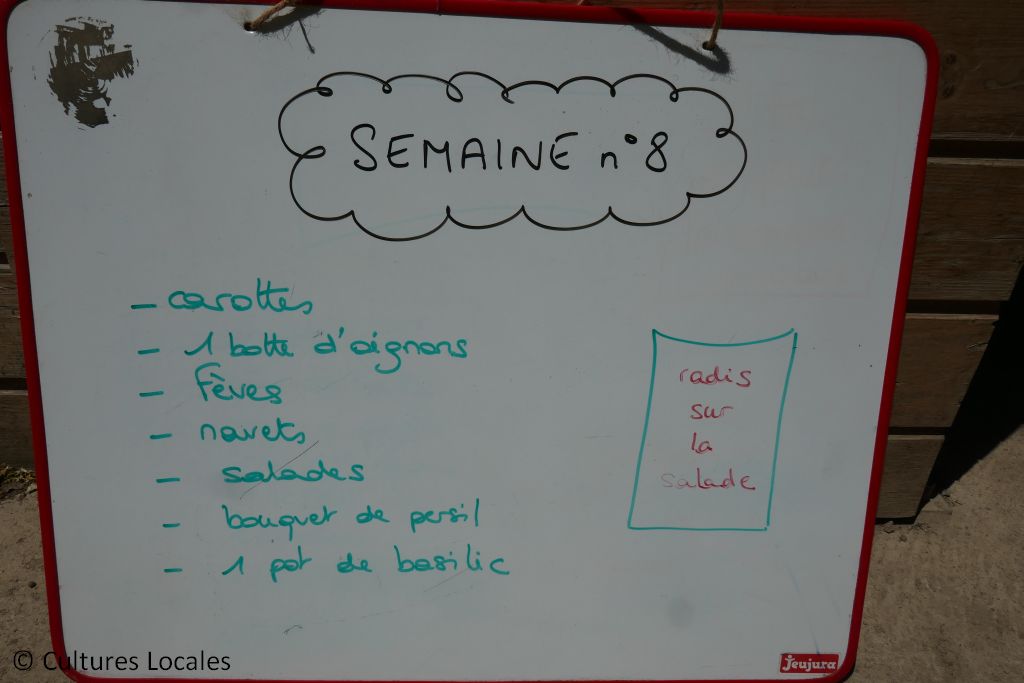 SEMAINE n°8
- carottes
- 1 botte d'oignons
- Fèves
- navets
- salades
- bouquet de persil
- 1 pot de basilic
radis
sur
la
salade
© Cultures Locales
Jeujura